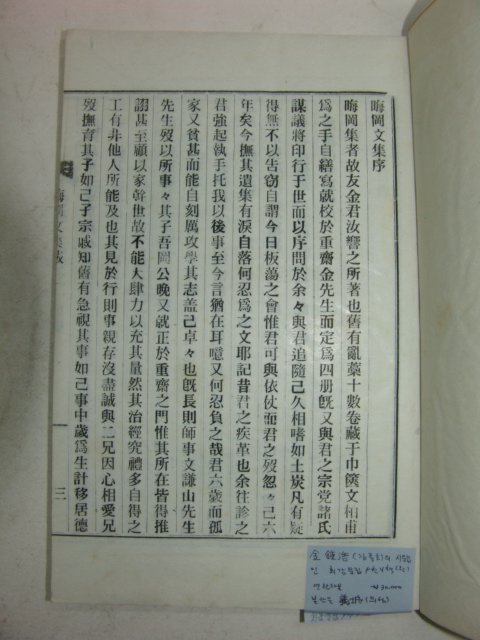 晦岡文集序
晦岡集者故友金君汝響之所著也舊有亂藁十數卷藏于巾篋文相甫
爲之手自繕寫就校於重齋金先生而定爲四册旣又與君之宗党諸氏
謀議將印行于世而以序問於余々與君追隨已久相嗜如土炭凡有疑
得無不以告窃自謂今日板蕩之會惟君可與依仗而君之歿忽々已六
年矣今撫其遺集有淚自落何忍爲之文耶記昔君之疾革也余往診之
君強起執手托我以後事至今言猶在耳噫又何忍負之哉君六歲而孤
家又貧甚而能自刻厲攻學其志盖已卓々也旣長則師事文謙山先生
先生歿以所事々其子吾岡公晚又就正於重齋之門惟其所在皆得推
詡甚至顧以家幹世故不能大肆力以充其量然其治經究禮多自得之
工有非他人所能及也其見於行則事親存沒盡誠與二兄因心相愛兄
歿撫育其子如己子宗戚知舊有急視其事如己事中歲爲生計移居德
文集
三